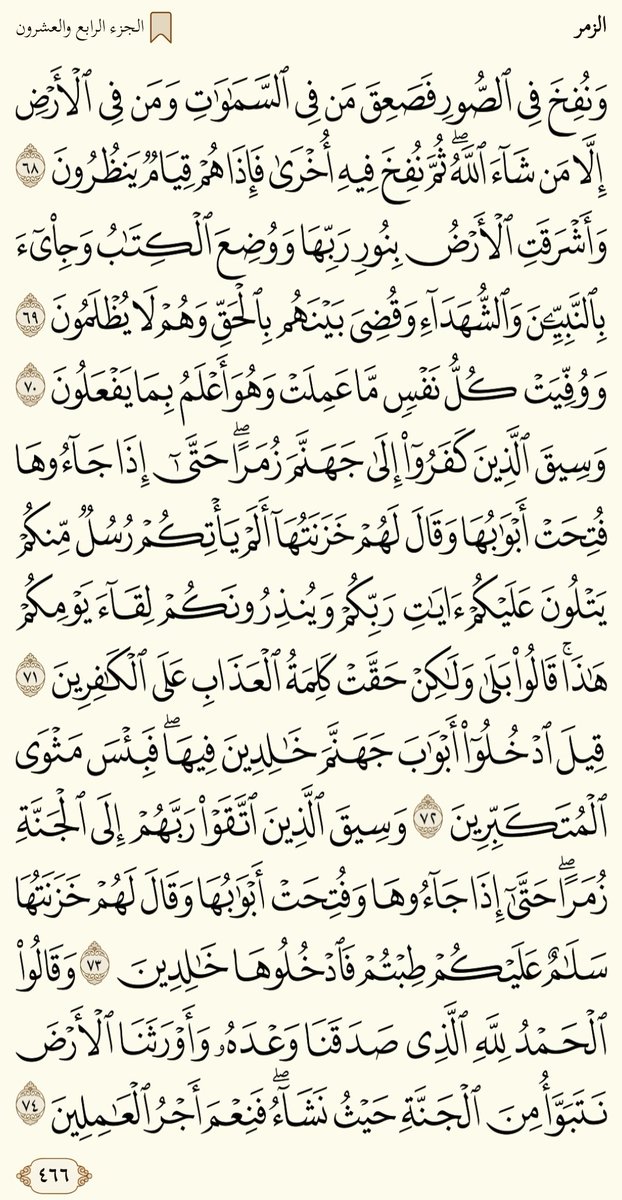 الزمر
الجزء الرابع والعشرون
وَنُفِخَ فِي ٱلصُّورِ فَصَعِقَ مَن فِي ٱلسَّمَٰوَٰتِ وَمَن فِي ٱلۡأَرۡضِ
إِلَّا مَن شَآءَ ٱللَّهُۖ ثُمَّ نُفِخَ فِيهِ أُخۡرَىٰ فَإِذَا هُمۡ قِيَامٞ يَنظُرُونَ ٦٨
وَأَشۡرَقَتِ ٱلۡأَرۡضُ بِنُورِ رَبِّهَا وَوُضِعَ ٱلۡكِتَٰبُ وَجِاْيٓءَ
بِٱلنَّبِيِّـۧنَ وَٱلشُّهَدَآءِ وَقُضِيَ بَيۡنَهُم بِٱلۡحَقِّ وَهُمۡ لَا يُظۡلَمُونَ ٦٩
وَوُفِّيَتۡ كُلُّ نَفۡسٖ مَّا عَمِلَتۡ وَهُوَ أَعۡلَمُ بِمَا يَفۡعَلُونَ ٧٠
وَسِيقَ ٱلَّذِينَ كَفَرُوٓاْ إِلَىٰ جَهَنَّمَ زُمَرًاۖ حَتَّىٰٓ إِذَا جَآءُوهَا
فُتِحَتۡ أَبۡوَٰبُهَا وَقَالَ لَهُمۡ خَزَنَتُهَآ أَلَمۡ يَأۡتِكُمۡ رُسُلٞ مِّنكُمۡ
يَتۡلُونَ عَلَيۡكُمۡ ءَايَٰتِ رَبِّكُمۡ وَيُنذِرُونَكُمۡ لِقَآءَ يَوۡمِكُمۡ
هَٰذَاۚ قَالُواْ بَلَىٰ وَلَٰكِنۡ حَقَّتۡ كَلِمَةُ ٱلۡعَذَابِ عَلَى ٱلۡكَٰفِرِينَ ٧١
قِيلَ ٱدۡخُلُوٓاْ أَبۡوَٰبَ جَهَنَّمَ خَٰلِدِينَ فِيهَاۖ فَبِئۡسَ مَثۡوَى
ٱلۡمُتَكَبِّرِينَ ٧٢ وَسِيقَ ٱلَّذِينَ ٱتَّقَوۡاْ رَبَّهُمۡ إِلَى ٱلۡجَنَّةِ
زُمَرًاۖ حَتَّىٰٓ إِذَا جَآءُوهَا وَفُتِحَتۡ أَبۡوَٰبُهَا وَقَالَ لَهُمۡ خَزَنَتُهَا
سَلَٰمٌ عَلَيۡكُمۡ طِبۡتُمۡ فَٱدۡخُلُوهَا خَٰلِدِينَ ٧٣ وَقَالُواْ
ٱلۡحَمۡدُ لِلَّهِ ٱلَّذِي صَدَقَنَا وَعۡدَهُۥ وَأَوۡرَثَنَا ٱلۡأَرۡضَ
نَتَبَوَّأُ مِنَ ٱلۡجَنَّةِ حَيۡثُ نَشَآءُۖ فَنِعۡمَ أَجۡرُ ٱلۡعَٰمِلِينَ ٧٤
٤٦٦